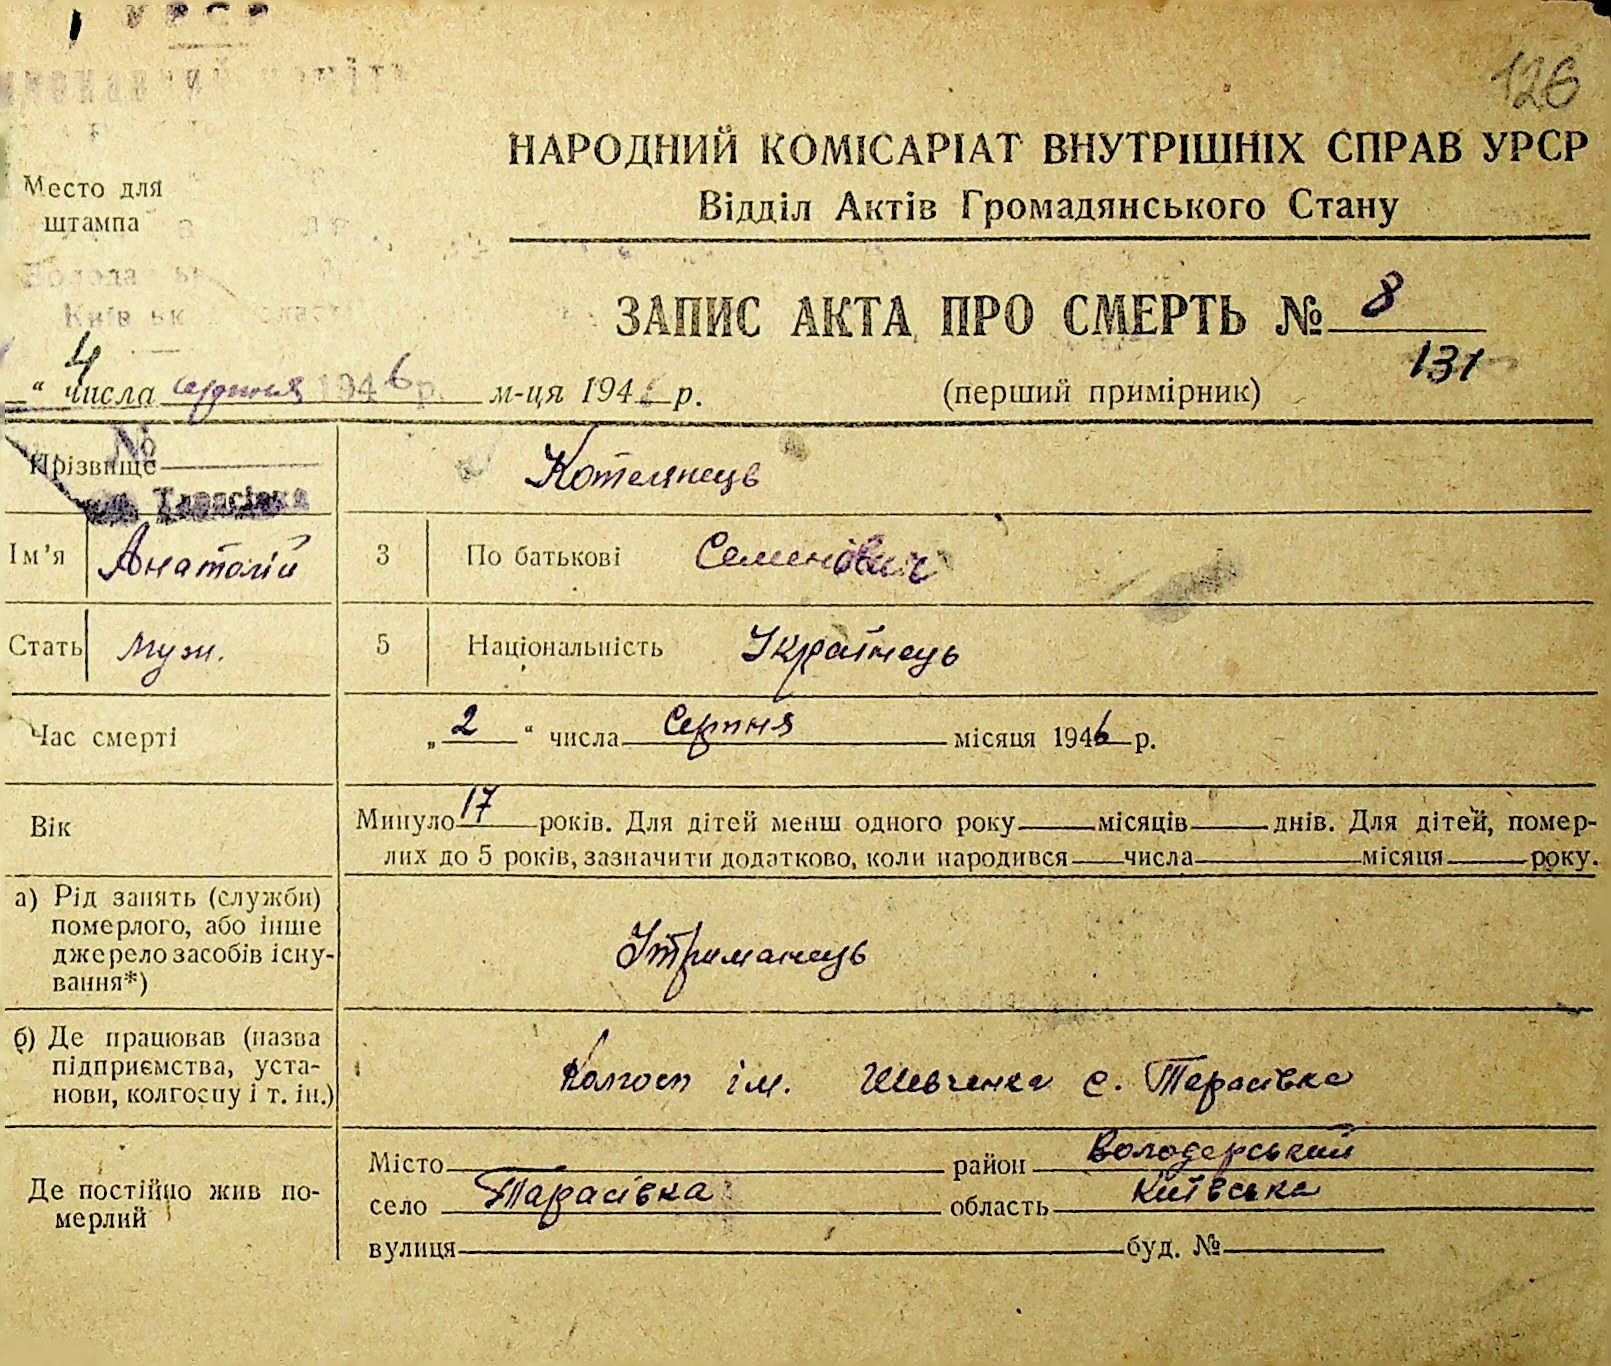 УРСР
126
НАРОДНИЙ КОМІСАРІАТ ВНУТРІШНІХ СПРАВ УРСР
Відділ Актів Громадянського Стану
Место для
штампа
ЗАПИС АКТА ПРО СМЕРТЬ № 8
131
"4" числа серпня 1946 р. м-ця 194 р.
(перший примірник)
№
Прізвище Котелянець
Тарасівка
Ім'я Анатолій 3 По батькові Семенович
Стать муж. 5 Національність Українець
Час смерті „2“ числа Серпня місяця 1946 р.
Вік Минуло 17 років. Для дітей менш одного року місяців днів. Для дітей, помер-
лих до 5 років, зазначити додатково, коли народився числа місяця року.
а) Рід занять (служби)
померлого, або інше
джерело засобів існу-
вання*)
Утриманець
б) Де працював (назва
підприємства, уста-
нови, колгоспу і т. ін.)
Колгосп ім. Шевченка с. Тарасівка
Де постійно жив по-
мерлий
Місто район Володарський
село Тарасівка область Київська
вулиця буд. №